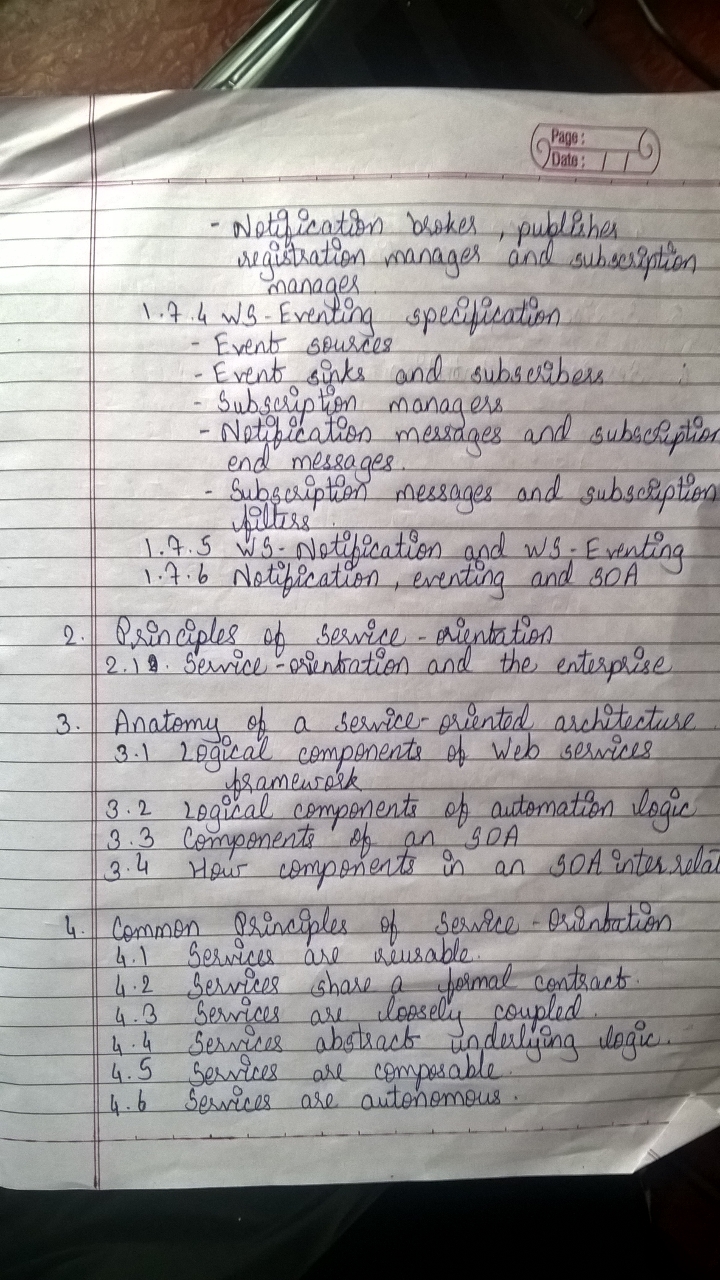 Page:
Date: / /
- Notification broker, publisher
registration manager and subscription
manager
1.7.4 WS-Eventing specification
- Event sources
- Event sinks and subscribers
- Subscription managers
- Notification messages and subscription
end messages.
- Subscription messages and subscription
filters
1.7.5 WS-Notification and WS-Eventing
1.7.6 Notification, eventing and SOA
2. Principles of Service-orientation
2.1 Service-orientation and the enterprise
3. Anatomy of a service-oriented architecture
3.1 Logical components of Web services
framework
3.2 Logical components of automation logic
3.3 Components of an SOA
3.4 How components in an SOA inter relat
4. Common Principles of Service-Orientation
4.1 Services are reusable.
4.2 Services share a formal contract.
4.3 Services are loosely coupled.
4.4 Services abstract underlying logic.
4.5 Services are composable.
4.6 Services are autonomous.